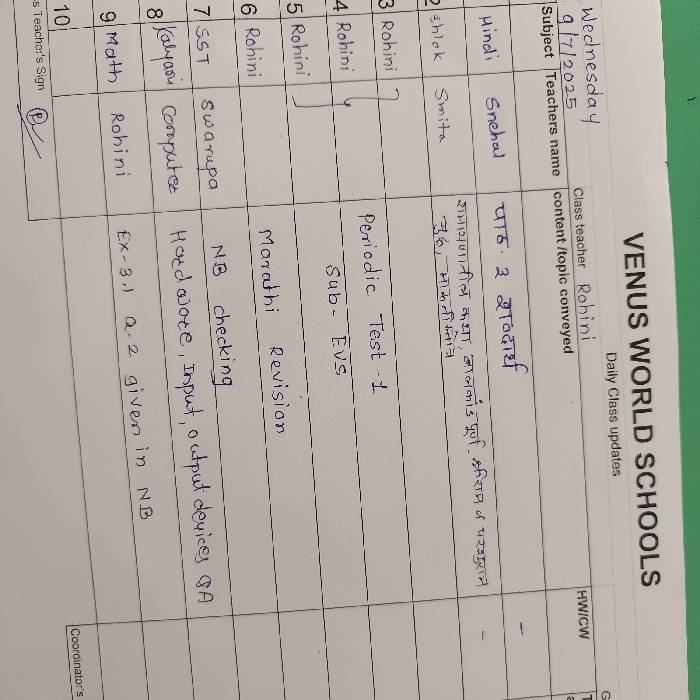 VENUS WORLD SCHOOLS
Daily Class updates
Wednesday
9/7/2025 Class teacher Rohini
Subject Teachers name content/topic conveyed HW/CW
Hindi Snehal पाठ. 2 शब्दार्थ -
2 Shlok Smita रामायणातील कथा, बालकांड पूर्ण. श्रीराम व परशुराम -
3 Rohini Periodic Test-1
4 Rohini Sub- EVS
5 Rohini
6 Rohini Marathi Revision
7 SST Swarupa NB checking
8 Kalyani Computer Hardware, Input, output devices QA
9 Math Rohini Ex-3.1 Q.2 given in NB
10
s Teacher's Sign Coordinator's